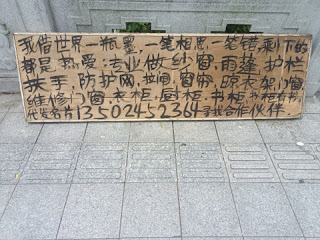 我借世界一瓶墨,一笔相思,一笔错,剩下的
都是热爱:专业做纱窗雨蓬护栏
扶手,防护网拉闸,窗帘,晾衣架,门窗
维修门窗,衣柜,厨柜,书柜
代发名片13502452364寻找合作伙伴